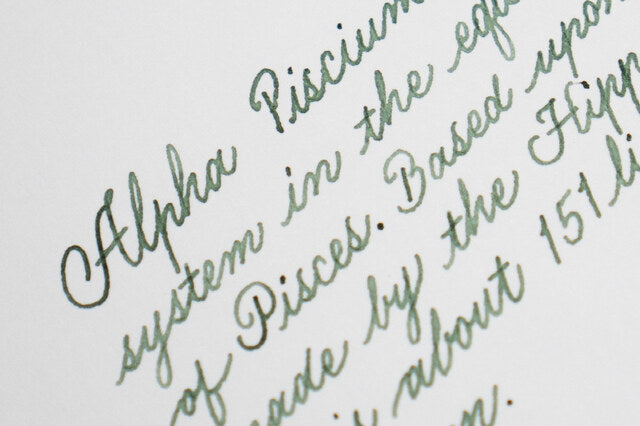 Alpha Piscium
system in the equ
of Pisces. Based upon
made by the Hipp
is about 151 li